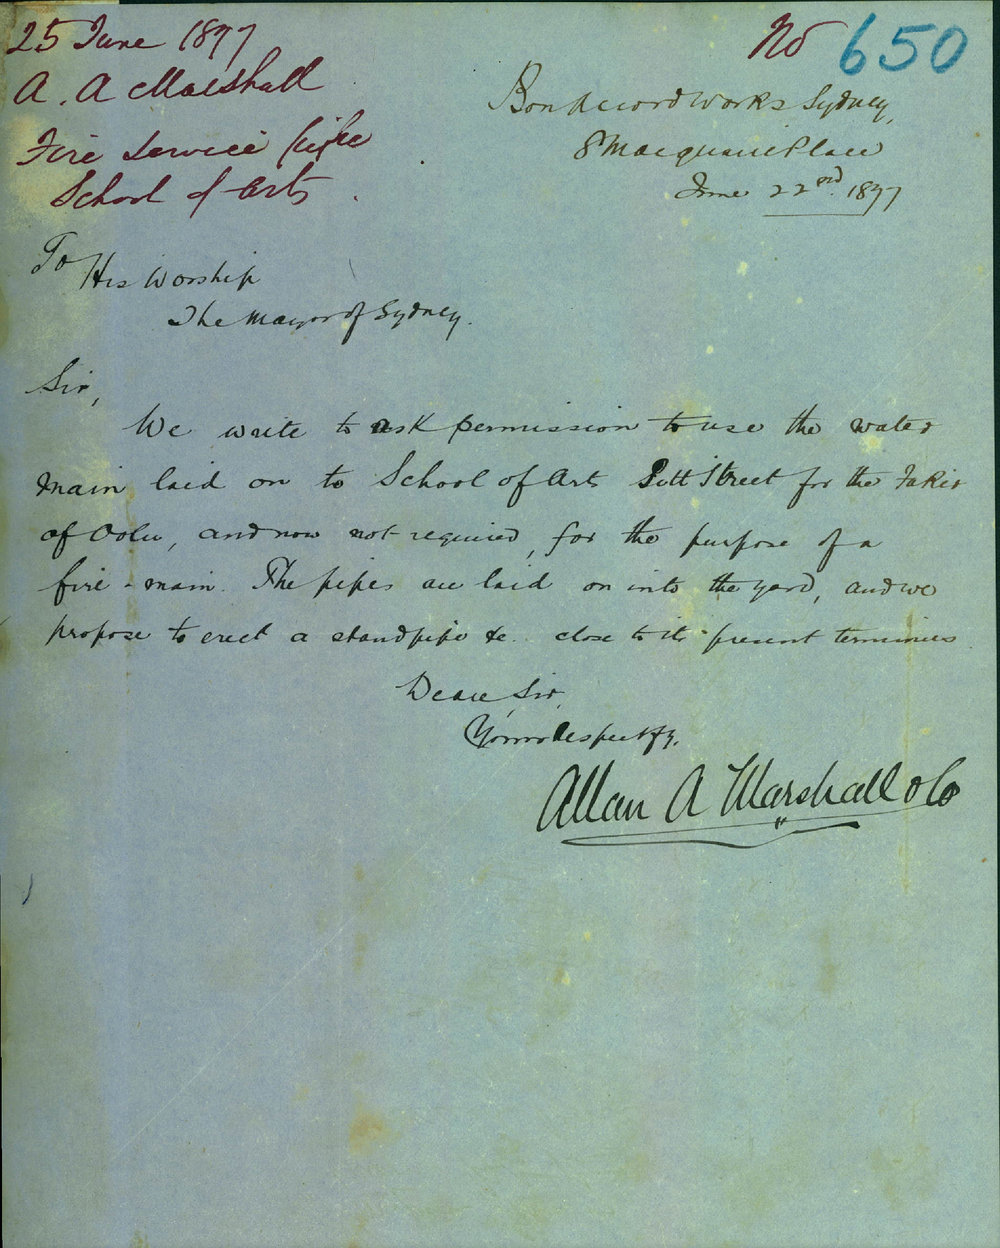 25 June 1877
A. A Marshall
Fire Service pipe
School of Arts.
No 650
Bon Accord Works Sydney,
8 Macquarie Place
June 22nd. 1877
To
His Worship
The Mayor of Sydney.
Sir,
We write to ask permission to use the water
main laid on to School of Arts Pitt Street for the Fakir
of Oolu, and now not required, for the purpose of a
fire-main. The pipes are laid on into the yard, and we
propose to erect a standpipe &c. close to its present terminus
Dear Sir,
Yours Respectfy.
Allan A Marshall & Co